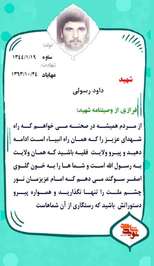 تولد:
ساوه
۱۳۴۴/۱/۱۹
شهادت:
مهاباد
۱۳۶۳/۱۰/۲۴
شهید
داود رسولی
فرازی از وصیتنامه شهید:
از مردم همیشه در صحنه می خواهم که راه
شهدای عزیز را که همان راه انبیاء است ادامه
دهید و پیرو ولایت فقیه باشید که همان ولایت
به رسول الله است و شما ها را به خون گلوی
اصغر سوگند می دهم که امام عزیزمان نور
چشم ملت را تنها نگذارید و همواره پیرو
دستوراتش باشید که رستگاری از آن شماست